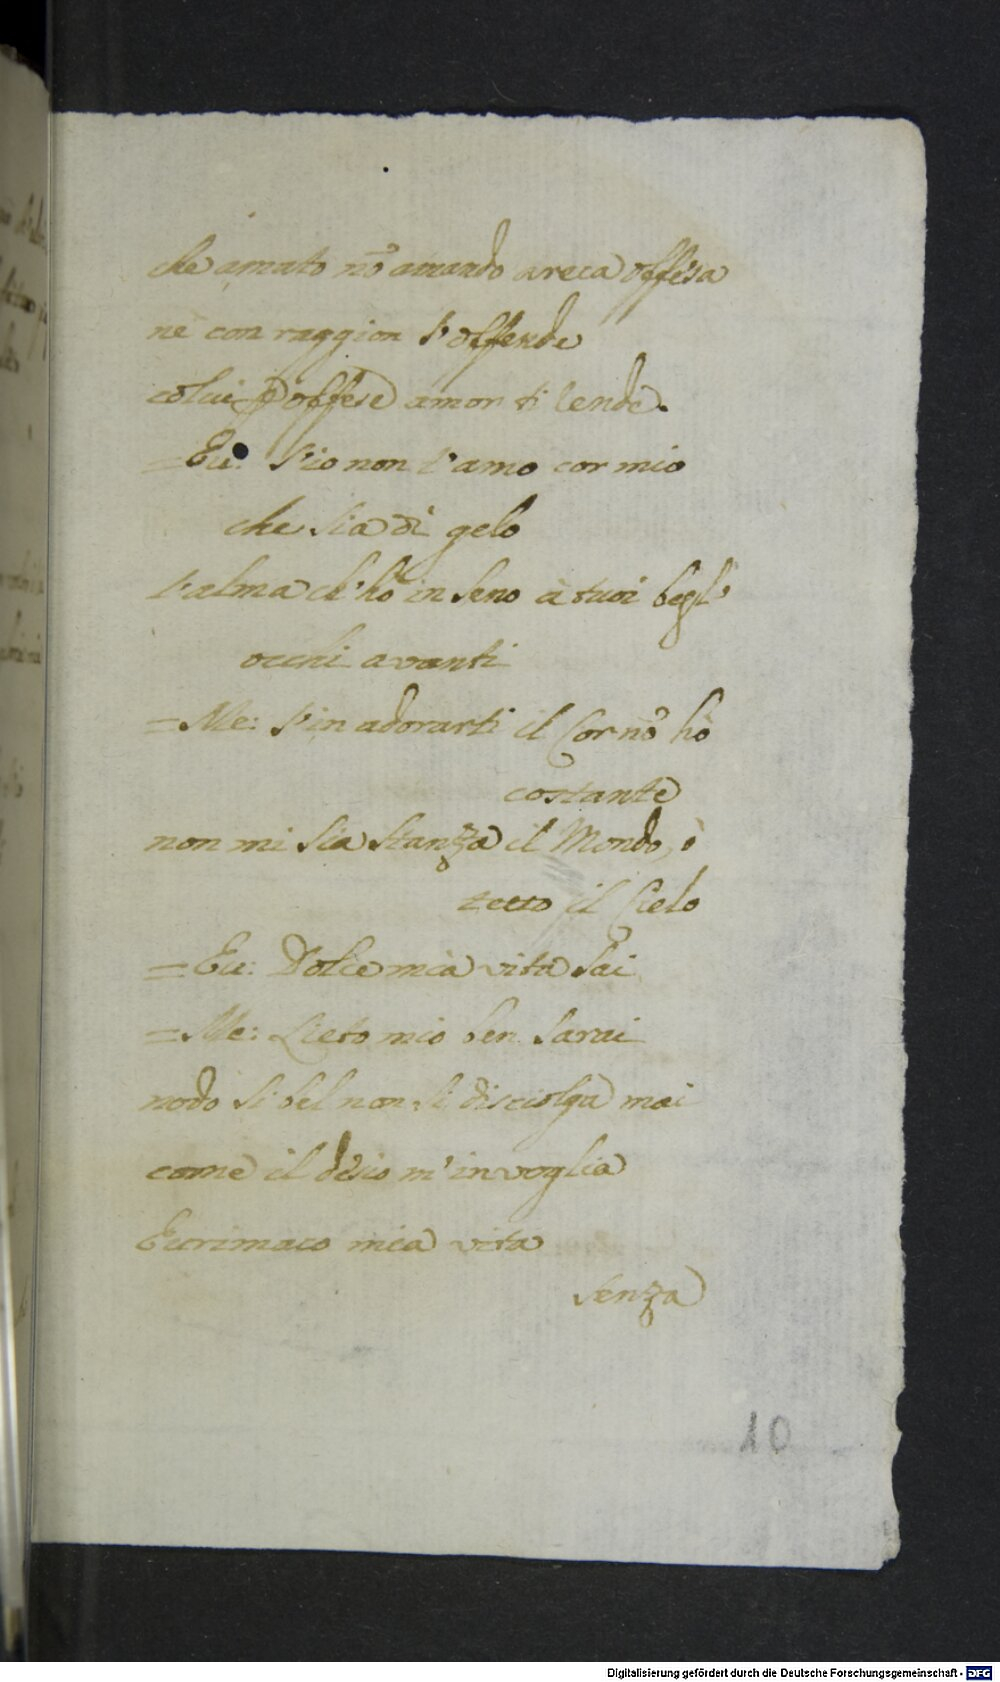 che amato nõ amando areca offesa
nè con raggion s'offende
colui p offese amor ti lende.
=Eu: S'io non t'amo cor mio
che sia di gelo
l'alma ch'hò in seno à tuoi begl'
occhi avanti
=Me: S'in adorarti il Cor nõ hò
costante
non mi sia stanza il Mondo, ò
tetto il Cielo
=Eu: Dolce mia vita sai
=Me: Lieto mio ben sarai
nodo si bel non si disciolga mai
come il désio m'invoglia
Eurimaco mia vita
senza
10
Digitalisierung gefördert durch die Deutsche Forschungsgemeinschaft - DFG